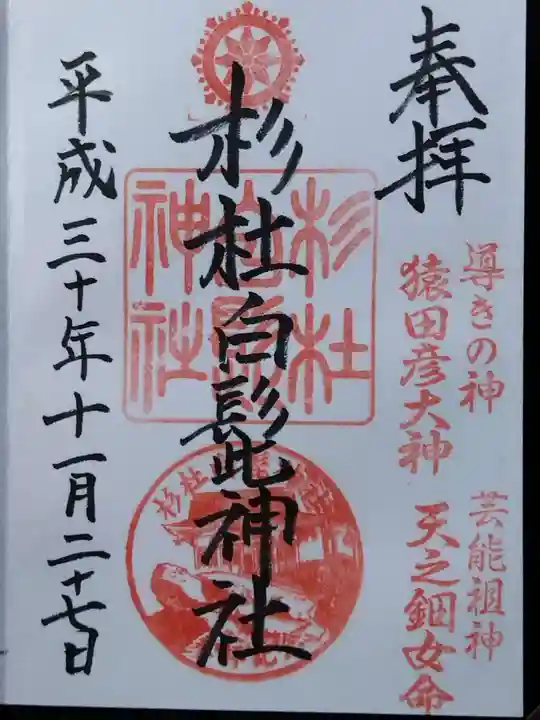 奉拝
導きの神
猿田彦大神
芸能祖神
天之鈿女命
杉杜白髭神社
杉杜白髭神社
平成三十年十一月二十七日